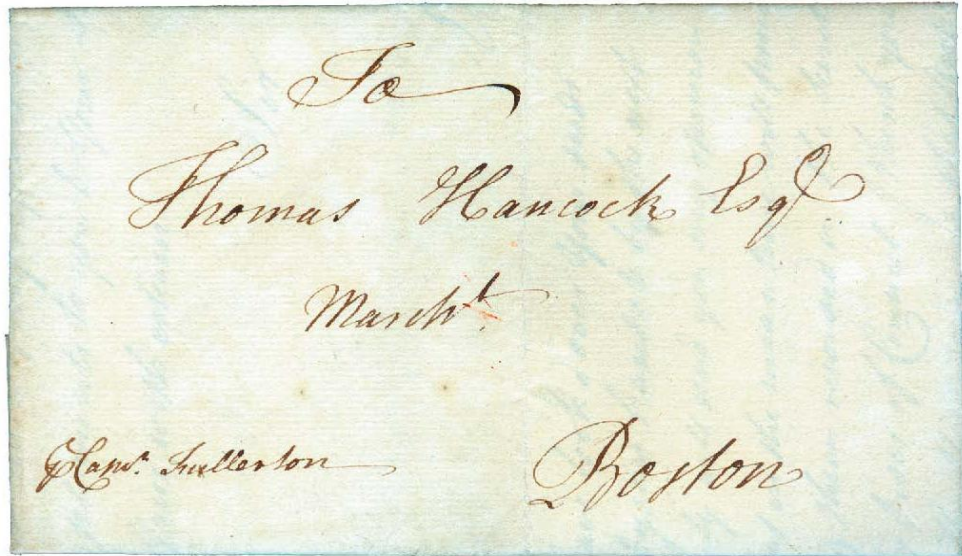 To
Thomas Hancock Esqr
Marcht.
⅌ Capt. Fullerton
Boston